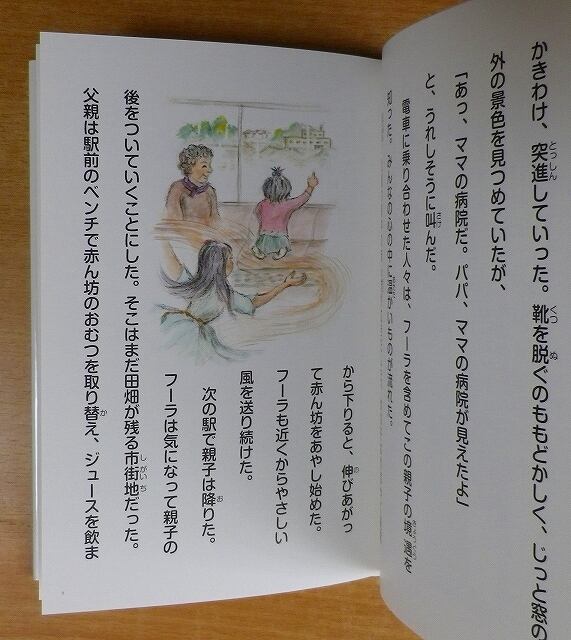 かきわけ、突進していった。靴を脱ぐのももどかしく、じっと窓の
外の景色を見つめていたが、
「あっ、ママの病院だ。パパ、ママの病院が見えたよ」
と、うれしそうに叫んだ。
電車に乗り合わせた人々は、フーラを含めてこの親子の境遇を
知った。みんなの心の中に
から下りると、伸びあがっ
て赤ん坊をあやし始めた。
フーラも近くからやさしい
風を送り続けた。
次の駅で親子は降りた。
フーラは気になって親子の
後をついていくことにした。そこはまだ田畑が残る市街地だった。
父親は駅前のベンチで赤ん坊のおむつを取り替え、ジュースを飲ま